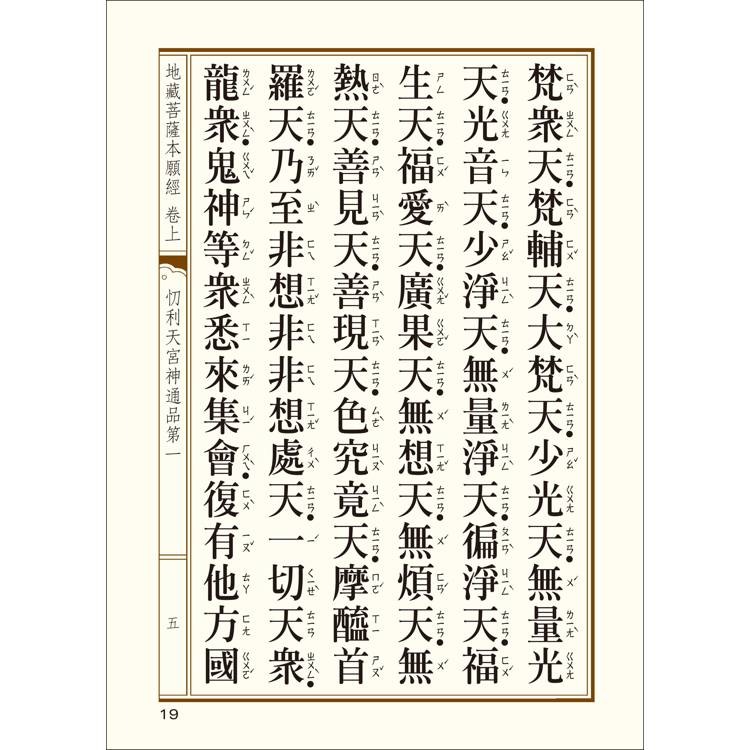 梵衆天梵輔天大梵天少光天無量光
天光音天少淨天無量淨天徧淨天福
生天福愛天廣果天無想天無煩天無
熱天善見天善現天色究竟天摩醯首
羅天乃至非想非非想處天一切天衆
龍衆鬼神等衆悉來集會復有他方國
地藏菩薩本願經 卷上
忉利天宮神通品第一
五
19